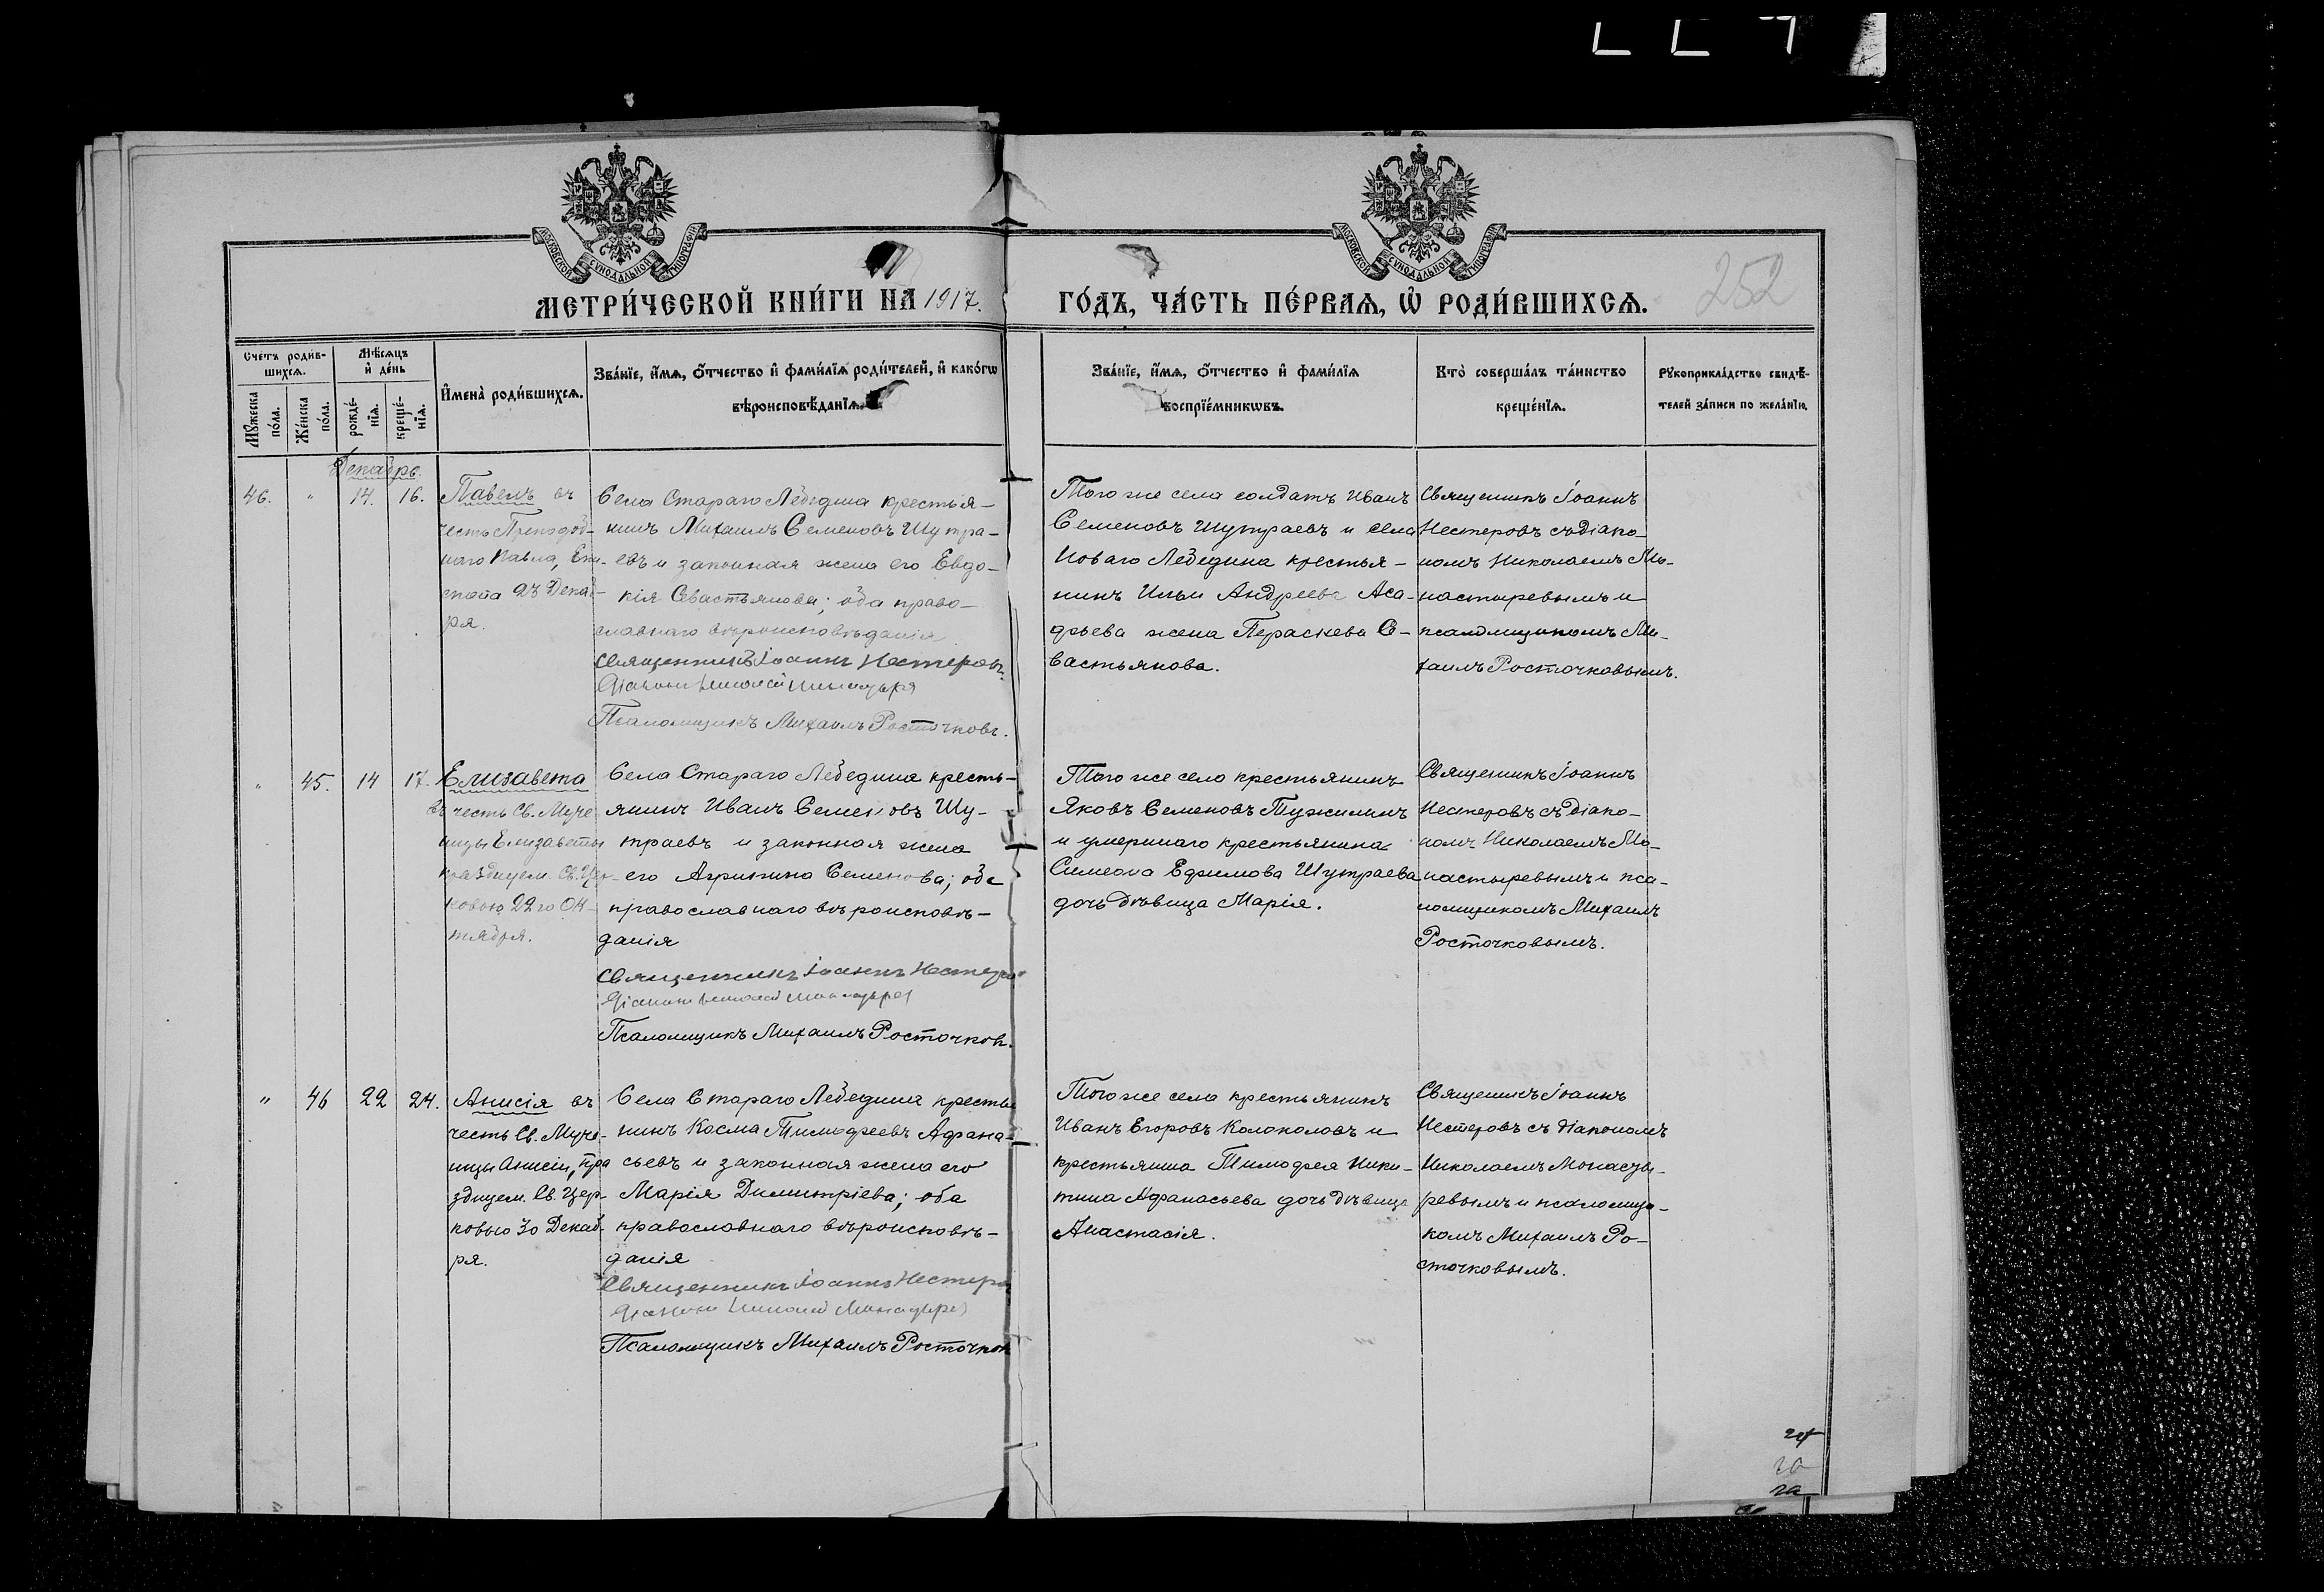 МЕТРИ́ЧЕСКОЙ КНИ́ГИ НА 1917.
ГО́ДЪ, ЧА́СТЬ ПЕ́РВАѦ, Ѡ҆ РОДИ́ВШИХСѦ.
252
Счетъ родив-
шихсѧ.
Мѣ́сѧцъ
и҆ де́нь
Мꙋжеска
по́ла.
Же́нска
по́ла.
рожде́-
нїѧ.
креще́-
нїѧ.
И҆мена̀ роди́вшихсѧ.
Зва́нїе, и҆́мѧ, ѻ҆́тчество и҆ фами́лїѧ роди́телей, и҆ како́гѡ
вѣроисповѣ́данїѧ.
Зва́нїе, и҆́мѧ, ѻ҆́тчество и҆ фами́лїѧ
воспрїе́мникѡвъ.
Кто̀ соверша́лъ та́инство
креще́нїѧ.
Рꙋкоприкла́дство свидѣ́-
телей за́писи по жела́нїю.
Декабрь.
46. " 14. 16.
Павелъ въ
честь Преподоб-
наго Павла, Епи-
скопа 23 Декаб-
ря.
Села Стараго Лебедина крестья-
нинъ Михаилъ Семеновъ Шутра-
евъ и законная жена его Евдо-
кія Севастьянова; оба право-
славнаго вѣроисповѣданія
Священникъ Іоаннъ Нестеровъ.
Діаконъ Николай
Псаломщикъ Михаилъ Росточковъ.
Того же села солдатъ Иванъ
Семеновъ Шутраевъ и села
Новаго Лебедина крестья-
нинъ Ильи Андреева Аса-
фьева жена Параскева Се-
вастьянова.
Священникъ Іоаннъ
Нестеровъ съ діако-
номъ Николаемъ Мо-
настыревымъ и
псаломщикомъ Ми-
хаилъ Росточковымъ.
" 45. 14 17.
Елизавета
въ честь Св. Муче
ницы Елизаветы
празднуем. Св. Цер-
ковью 22го Ок-
тября.
Села Стараго Лебедина кресть-
янинъ Иванъ Семеновъ Шу-
траевъ и законная жена
его Агрипина Семенова; оба
православнаго вѣроисповѣ-
данія
Священникъ Іоаннъ Нестеро
Діаконъ Николай
Псаломщикъ Михаилъ Росточков.
Того же села крестьянинъ
Яковъ Семеновъ Тужилинъ
и умершаго крестьянина
Симеона Ефимова Шутраева
дочь дѣвица Марія.
Священникъ Іоаннъ
Нестеровъ съ діако-
номъ Николаемъ Мо-
настыревымъ и пса-
ломщикомъ Михаилъ
Росточковымъ.
" 46 22 24.
Анисія въ
честь Св. Муче-
ницы Анисіи, пра
зднуем. Св. Цер-
ковью 30 Декаб-
ря.
Села Стараго Лебедина крестья
нинъ Косма Тимофеевъ Афана-
сьевъ и законная жена его
Марія Димитріева; оба
православнаго вѣроисповѣ-
данія
Священникъ Іоаннъ Нестеро
Діаконъ Николай
Псаломщикъ Михаилъ Росточков
Того же села крестьянинъ
Иванъ Егоровъ Колоколовъ и
крестьянина Тимофея Ники-
тина Афанасьева дочь дѣвица
Анастасія.
Священникъ Іоаннъ
Нестеровъ съ діакономъ
Николаемъ Монасты-
ревымъ и псаломщи-
комъ Михаилъ Ро-
сточковымъ.